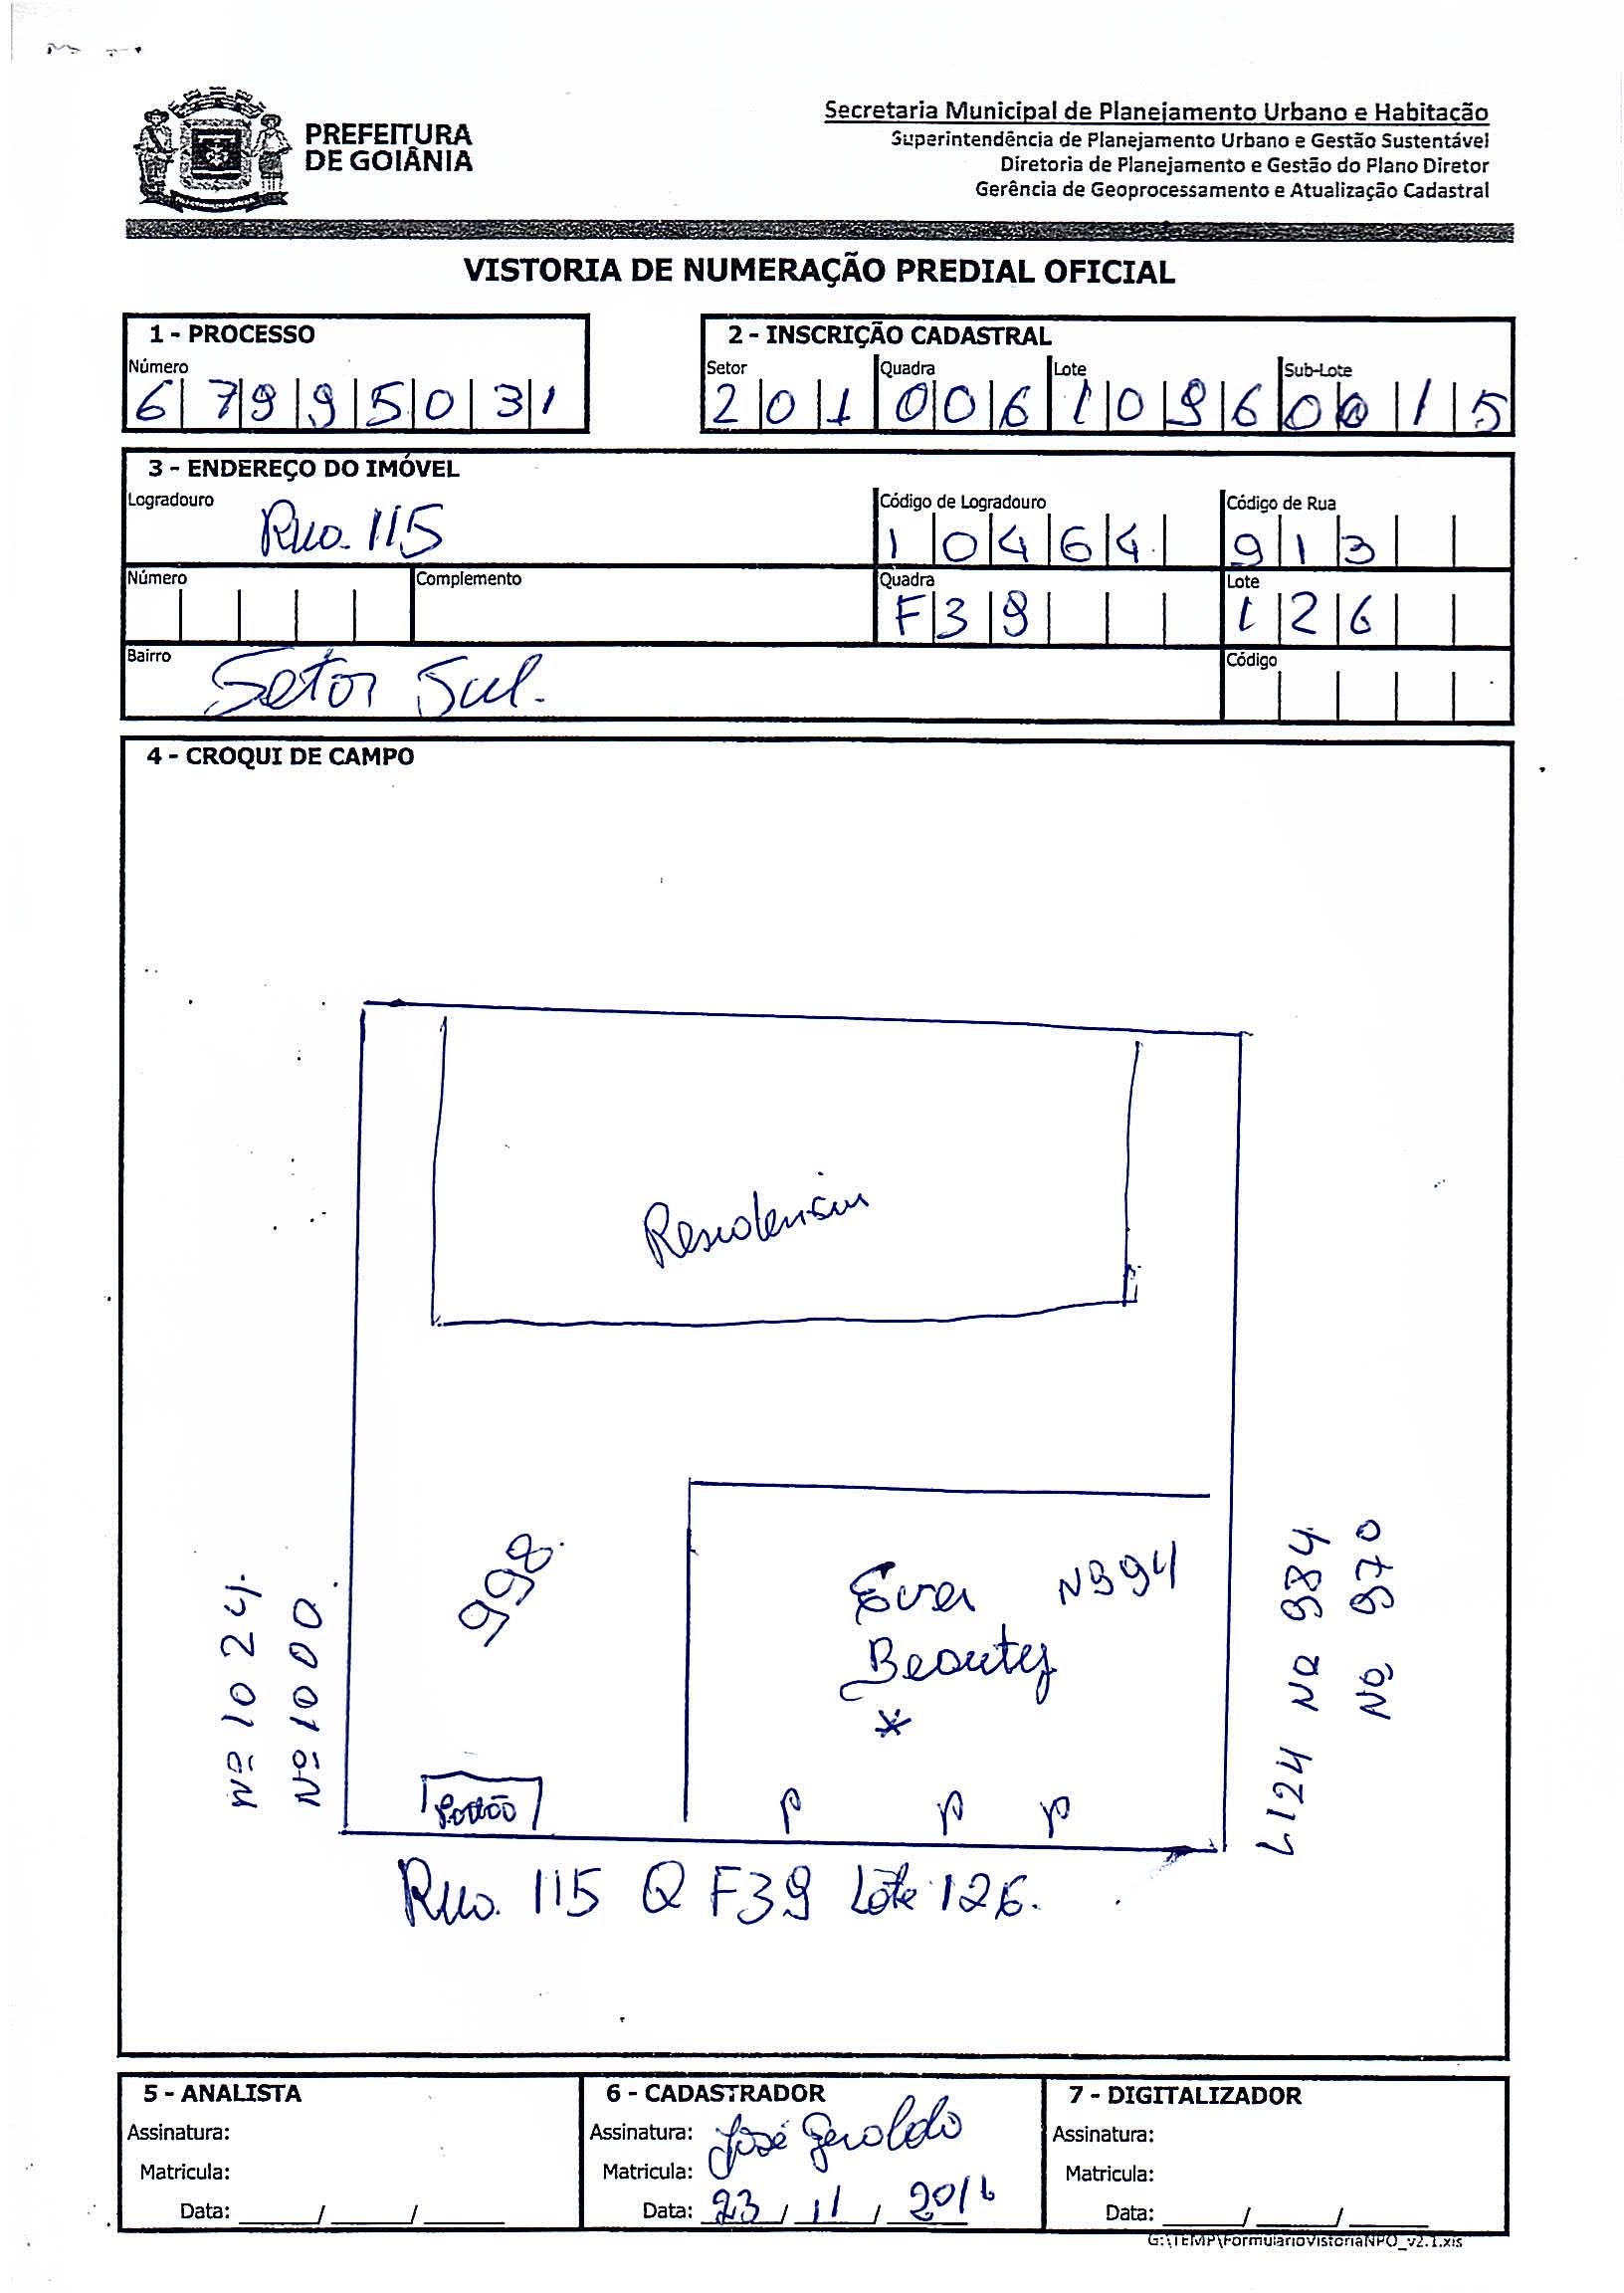 PREFEITURA
DE GOIÂNIA
Secretaria Municipal de Planejamento Urbano e Habitação
Superintendência de Planejamento Urbano e Gestão Sustentável
Diretoria de Planejamento e Gestão do Plano Diretor
Gerência de Geoprocessamento e Atualização Cadastral
VISTORIA DE NUMERAÇÃO PREDIAL OFICIAL
1 - PROCESSO
Número
67995031
2 - INSCRIÇÃO CADASTRAL
Setor Quadra Lote Sub-Lote
201 006 1096 0015
3 - ENDEREÇO DO IMÓVEL
Logradouro Código de Logradouro Código de Rua
Rua 115 10464 913
Número Complemento Quadra Lote
F39 126
Bairro Código
Setor Sul.
4 - CROQUI DE CAMPO
Residencia
998.
Eva Nº 994
Beauty
*
Nº 1024.
Nº 1000.
L124 Nº 984
Nº 970
Portão
P P P
Rua 115 Q F39 Lote 126.
5 - ANALISTA
Assinatura:
Matricula:
Data: ____/____/____
6 - CADASTRADOR
Assinatura: José Geraldo
Matricula:
Data: 23/11/2016
7 - DIGITALIZADOR
Assinatura:
Matricula:
Data: ____/____/____
G:\TEMP\FormularioVistoriaNPO_v2.1.xls